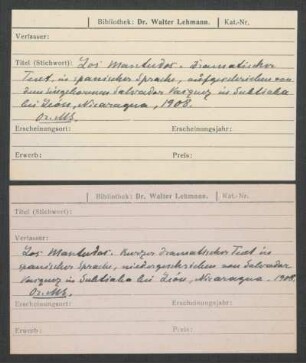 Bibliothek: Dr. Walter Lehmann. Kat.-Nr.
Verfasser:
Titel (Stichwort): Los Mantudos. Dramatischer
Text, in spanischer Sprache, aufgeschrieben von
dem Eingeborenen Salvador Vasquez in Subtiaba
bei León, Nicaragua, 1908.
Or. Ms.
Erscheinungsort: Erscheinungsjahr:
Erwerb: Preis:
Bibliothek: Dr. Walter Lehmann. Kat.-Nr.
Titel (Stichwort):
Verfasser:
Los Mantudos. Kurzer dramatischer Text in
spanischer Sprache, niedergeschrieben von Salvador
Vasquez in Subtiaba bei León, Nicaragua. 1908.
Or. Ms.
Erscheinungsort: Erscheinungsjahr:
Erwerb: Preis: